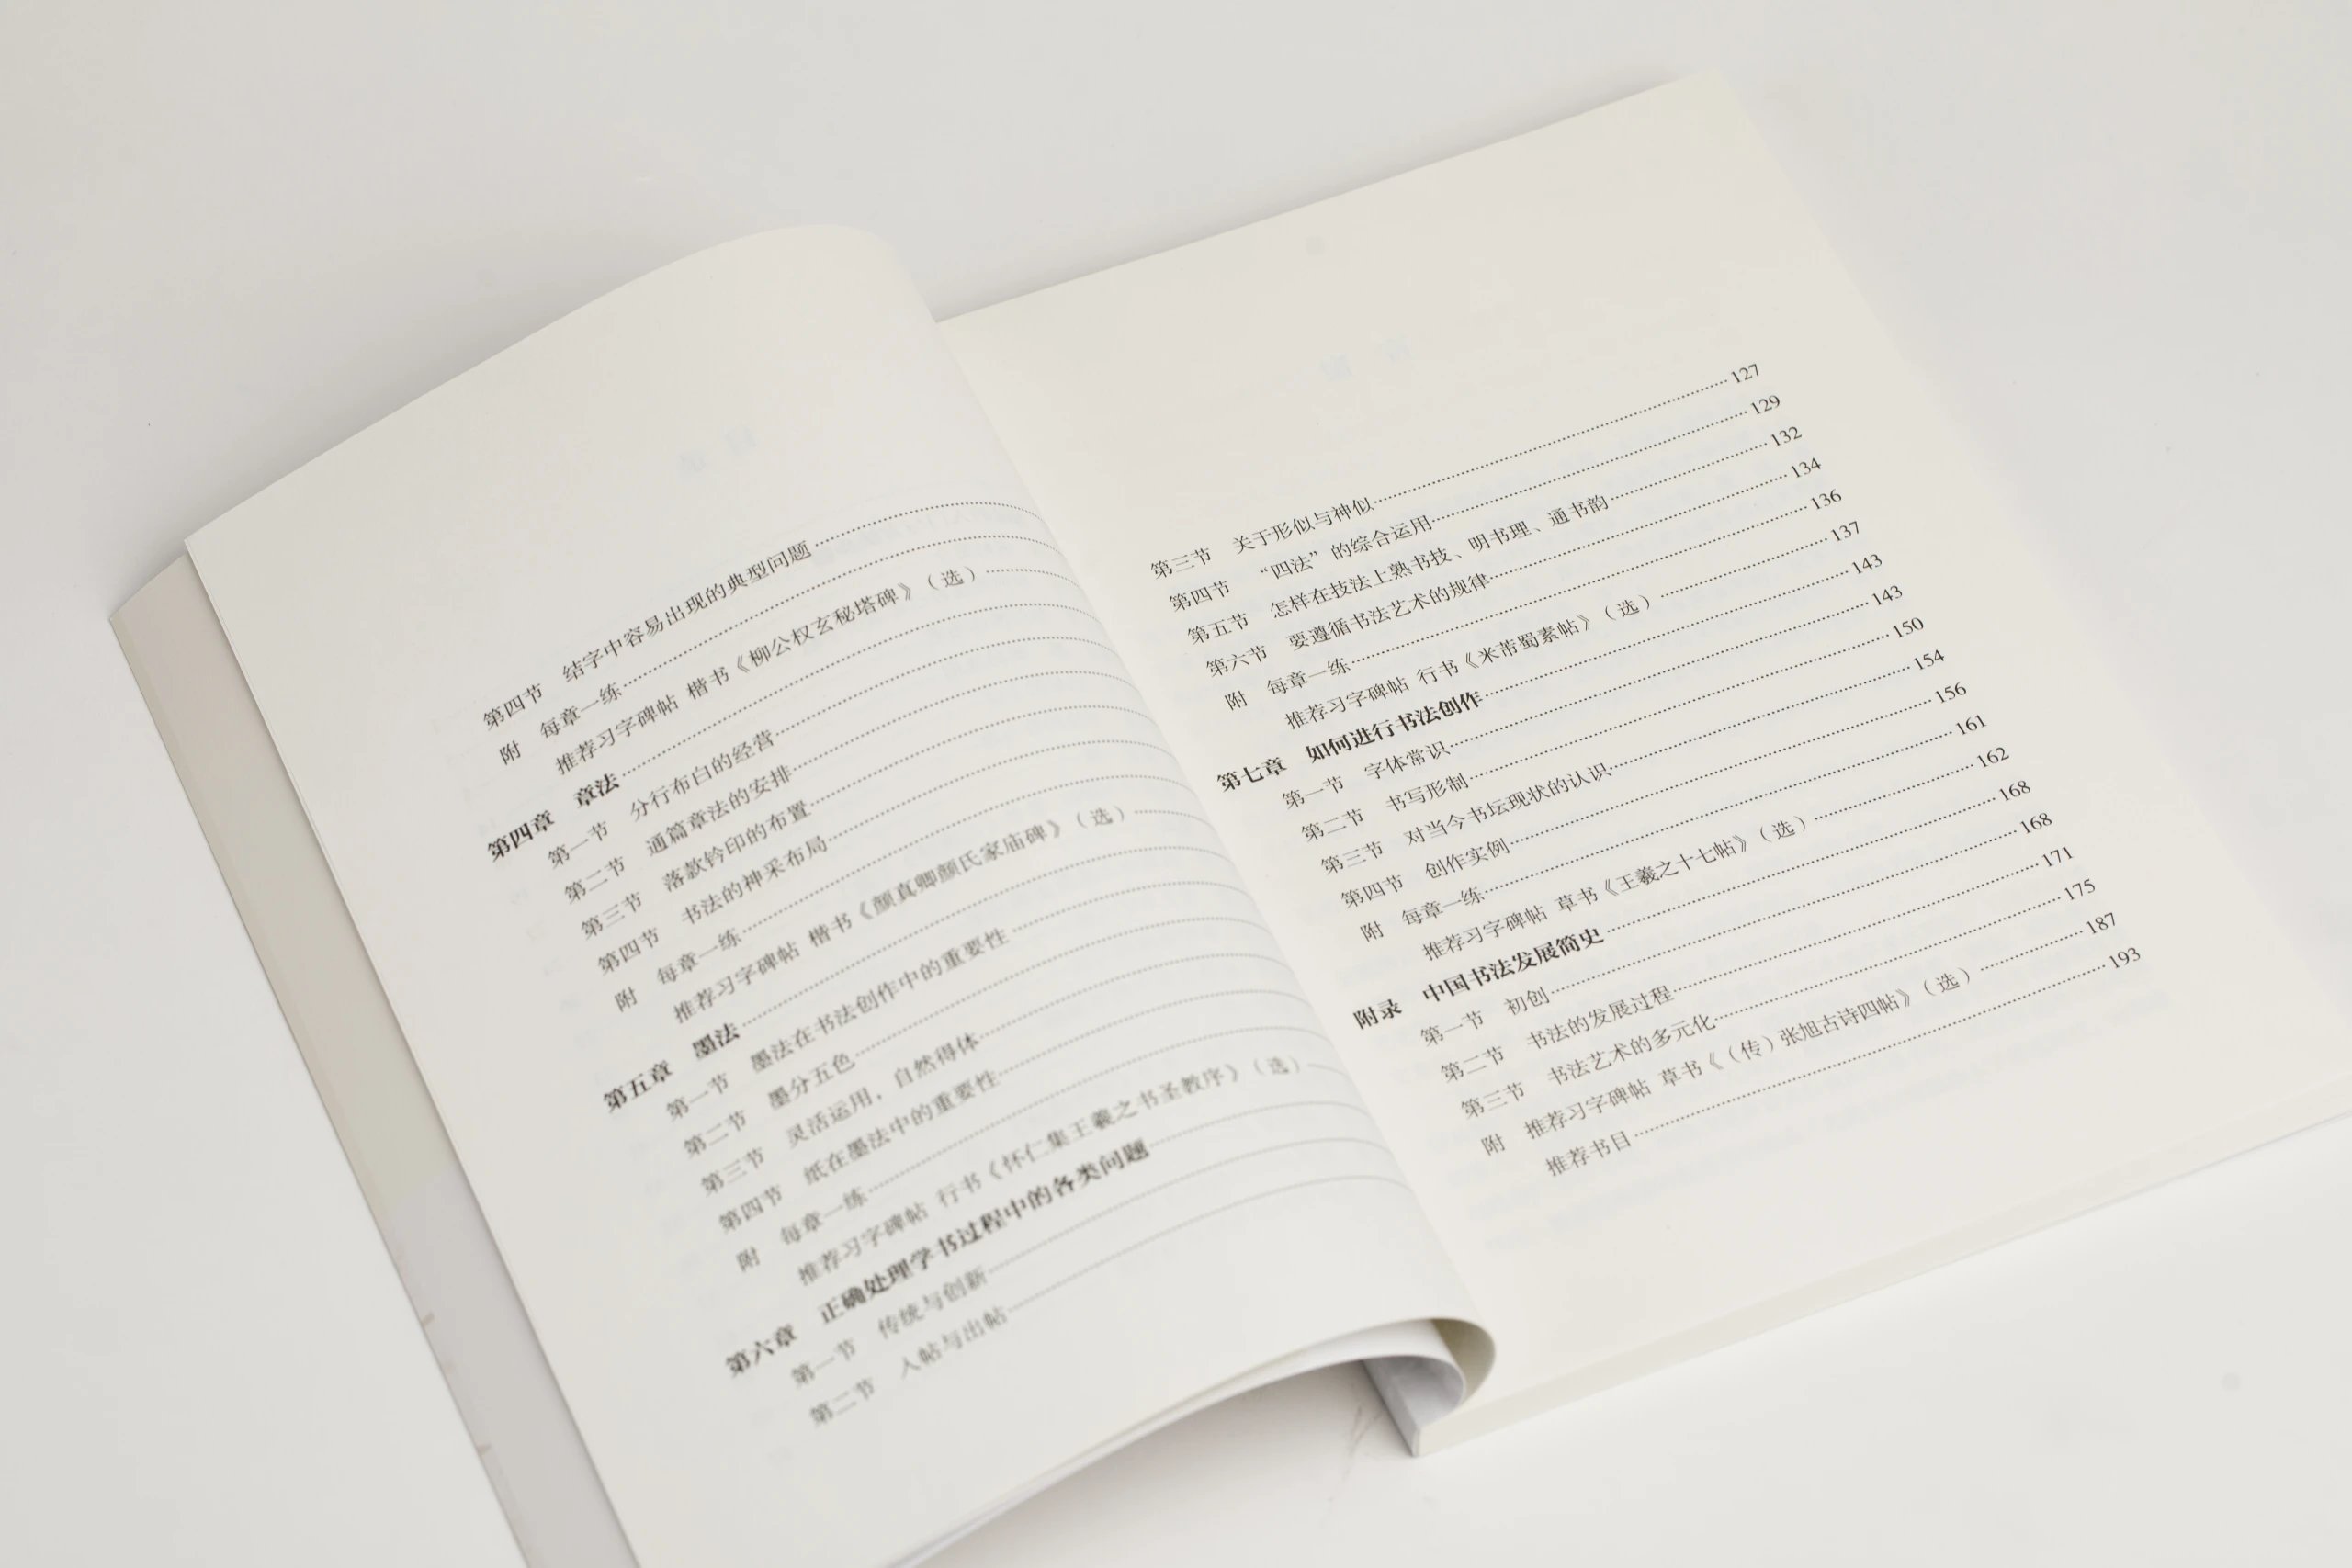 第四节 结字中容易出现的典型问题
附 每章一练
推荐习字碑帖 楷书《柳公权玄秘塔碑》(选)
第四章 章法
第一节 分行布白的经营
第二节 通篇章法的安排
第三节 落款钤印的布置
第四节 书法的神采布局
附 每章一练
推荐习字碑帖 楷书《颜真卿颜氏家庙碑》(选)
第五章 墨法
第一节 墨法在书法创作中的重要性
第二节 墨分五色
第三节 灵活运用，自然得体
第四节 纸在墨法中的重要性
附 每章一练
推荐习字碑帖 行书《怀仁集王羲之书圣教序》(选)
第六章 正确处理学书过程中的各类问题
第一节 传统与创新
第二节 入帖与出帖
第三节 关于形似与神似 127
第四节 “四法”的综合运用 129
第五节 怎样在技法上熟书技、明书理、通书韵 132
第六节 要遵循书法艺术的规律 134
附 每章一练 136
推荐习字碑帖 行书《米芾蜀素帖》(选) 137
第七章 如何进行书法创作 143
第一节 字体常识 143
第二节 书写形制 150
第三节 对当今书坛现状的认识 154
第四节 创作实例 156
附 每章一练 161
推荐习字碑帖 草书《王羲之十七帖》(选) 162
附录 中国书法发展简史 168
第一节 初创 168
第二节 书法的发展过程 171
第三节 书法艺术的多元化 175
附 推荐习字碑帖 草书《(传)张旭古诗四帖》(选) 187
推荐书目 193